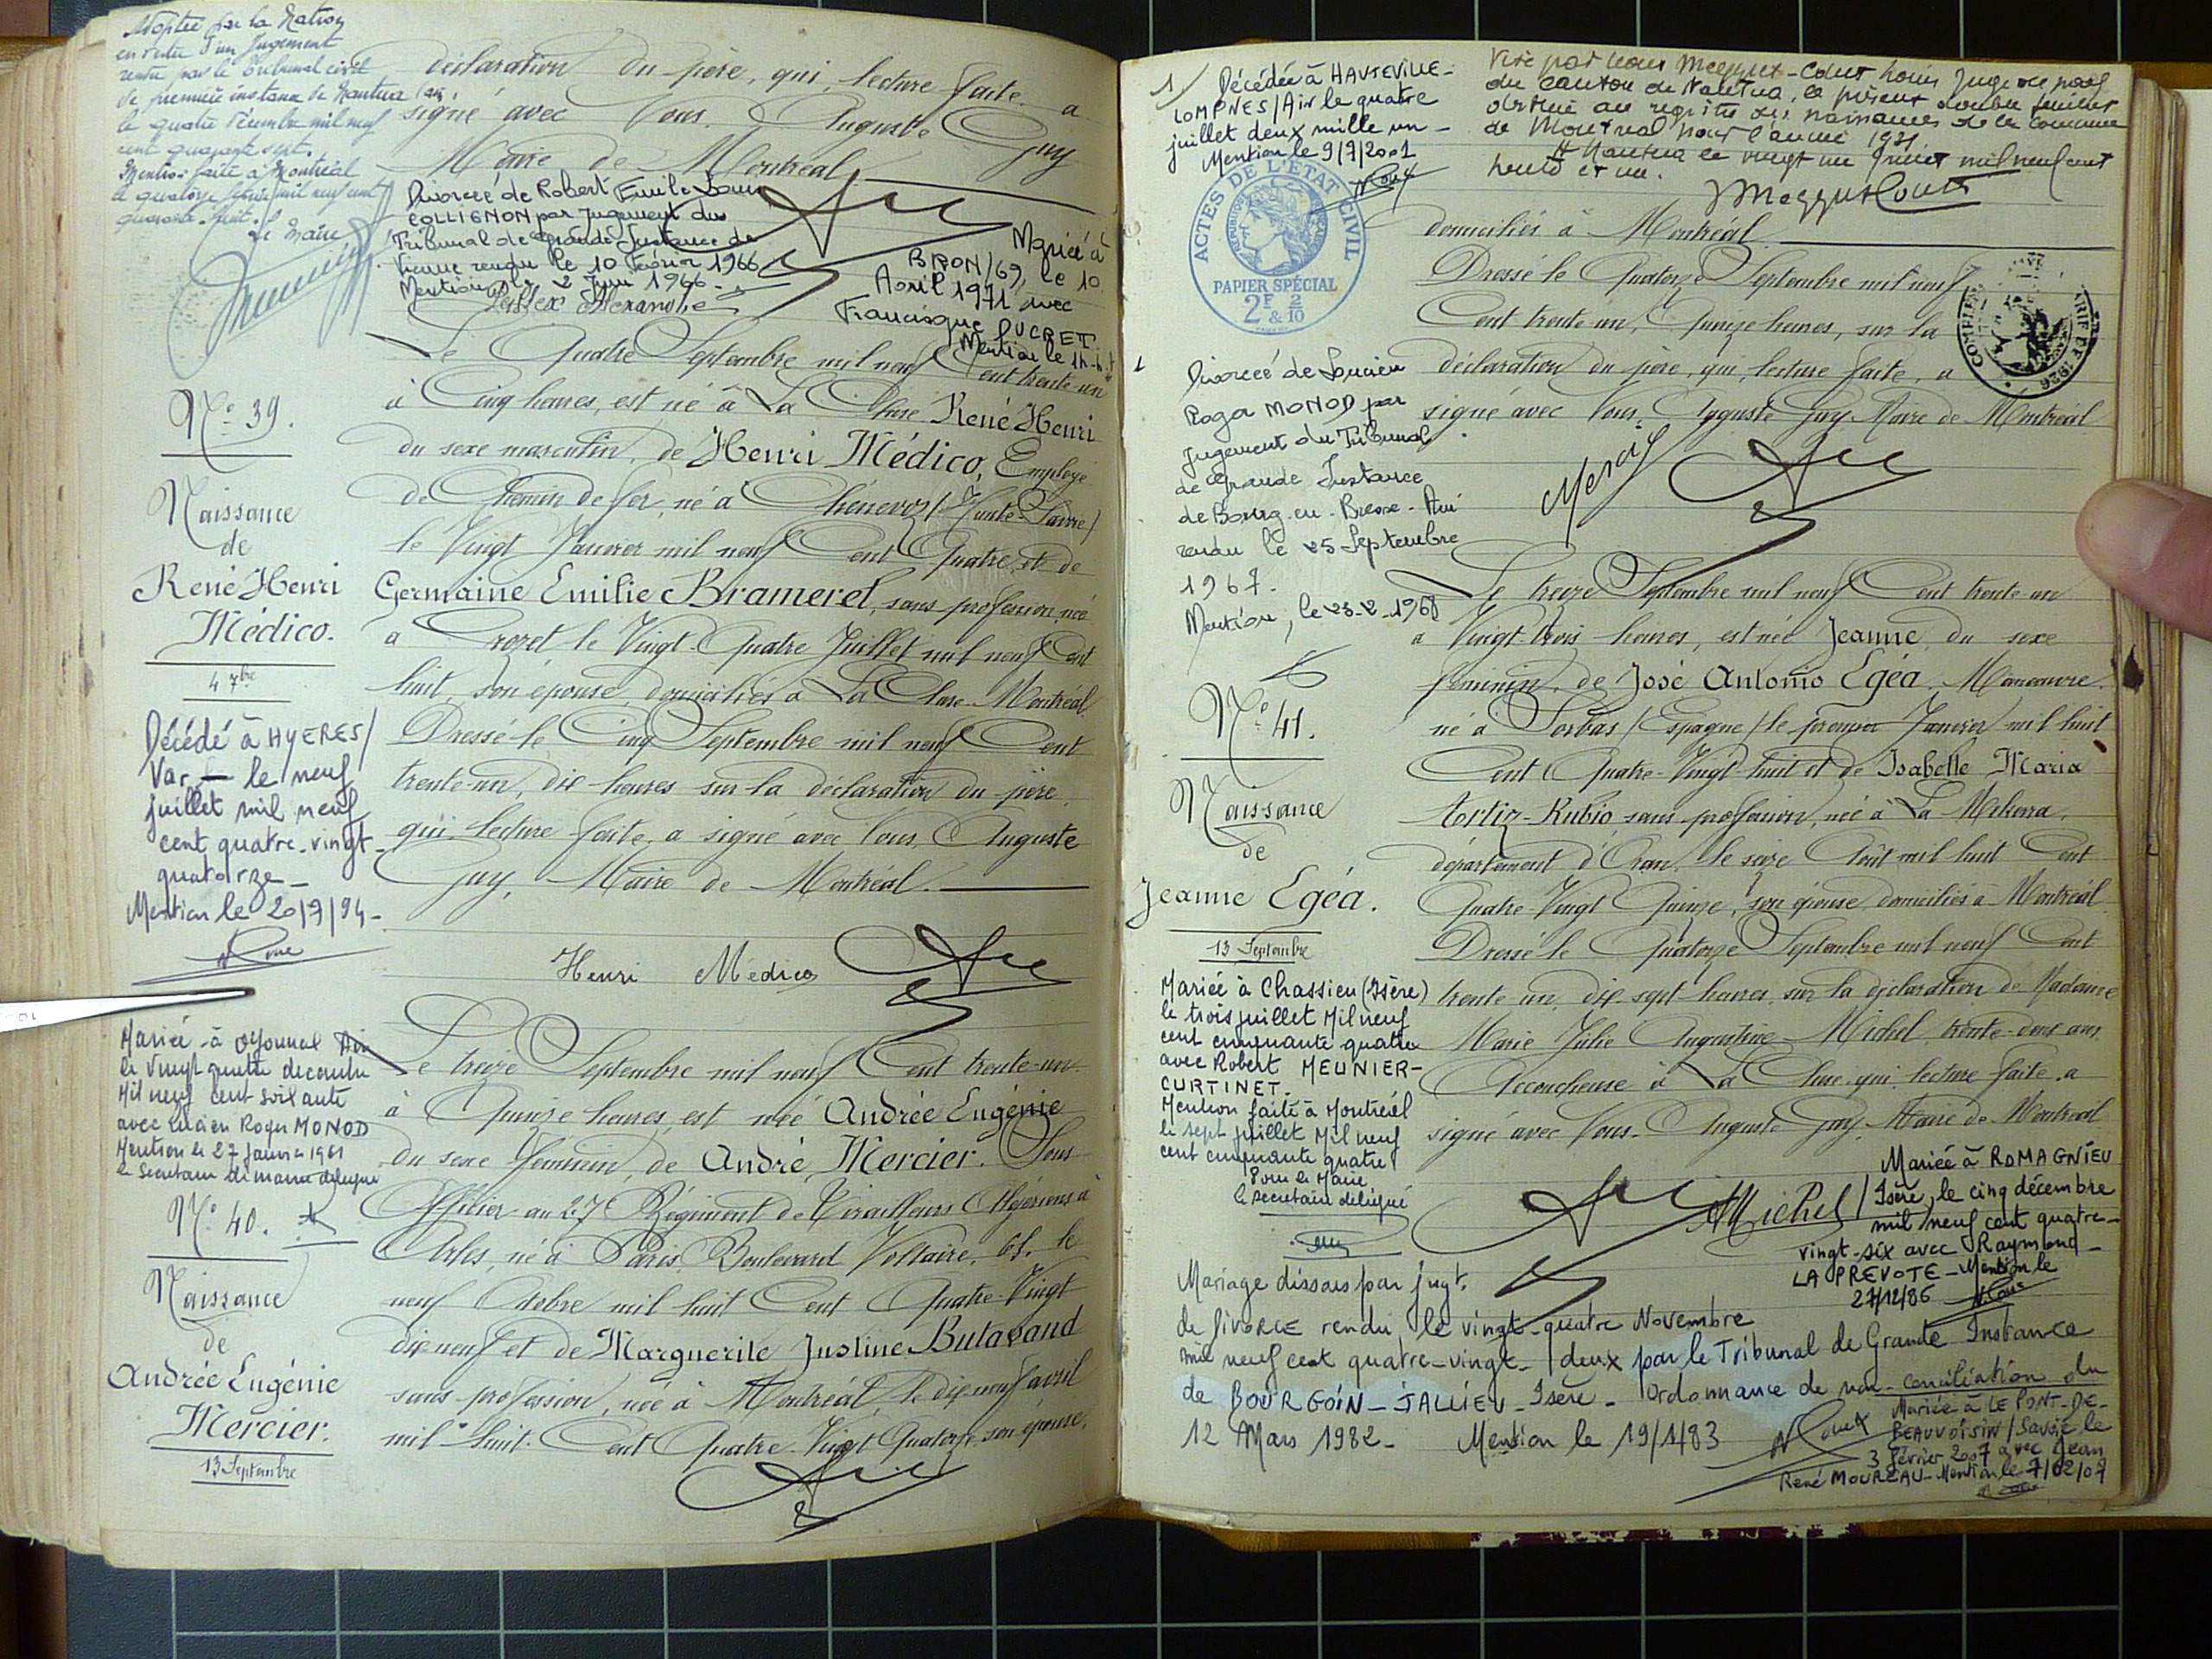 Adoptée par la Nation
en vertu d'un Jugement
rendu par le Tribunal civil
de première instance de Nantua (Ain)
le quatre décembre mil neuf
cent quarante sept.
Mention faite à Montréal
le quatorze février mil neuf cent
quarante-huit.
Le Maire
déclaration du père, qui, lecture faite a
signé avec Nous. Auguste Guy
Maire de Montréal.
Divorcée de Robert Emile Louis
COLLIGNON par Jugement du
Tribunal de Grande Instance de
Vienne rendu le 10 Février 1966
Mention le 2 Juin 1966
Mariée à
BRON/69, le 10
Avril 1971 avec
Francisque DUCRET
Mention le
Le Quatre Septembre mil neuf Cent trente un
à Cinq heures, est né à La Cluse René Henri
du sexe masculin, de Henri Médico, Employé
de Chemin de fer, né à Chênevoz (Haute-Savoie)
le Vingt Janvier mil neuf Cent Quatre et de
Germaine Emilie Bramerel, sans profession, née
à Crozet le Vingt-Quatre Juillet mil neuf Cent
huit, son épouse, domiciliés à La Cluse-Montréal.
Dressé le Cinq Septembre mil neuf Cent
trente-un, dix heures sur la déclaration du père
qui, lecture faite, a signé avec Nous, Auguste
Guy, Maire de Montréal.
Henri Médico
N° 39.
Naissance
de
René Henri
Médico.
4 7bre
Décédé à HYERES/
Var — le neuf
juillet mil neuf
cent quatre-vingt-
quatorze_
Mention le 20/7/94-
Mariée à Oyonnax Ain
le Vingt quatre décembre
Mil neuf cent soixante
avec Lucien Roger MONOD
Mention le 27 Janvier 1961
le Secrétaire de mairie délégué
N° 40.
Naissance
de
Andrée Eugénie
Mercier.
13 Septembre
Le treize Septembre mil neuf Cent trente-un
à Quinze heures, est née Andrée Eugénie
du sexe féminin, de André Mercier. Sous
Officier au 27 Régiment de Tirailleurs Algériens à
Arles, né à Paris, Boulevard Voltaire, 65, le
neuf Octobre mil huit Cent Quatre-Vingt
dix neuf et de Marguerite Justine Butavand
sans profession, née à Montréal, le dix neuf avril
mil huit Cent Quatre-Vingt Quatorze son épouse,
1/ Décédée à HAUTEVILLE-
LOMPNES/Ain le quatre
juillet deux mille un -
Mention le 9/7/2001
Visé par nous Juge de paix
du canton de Nantua, le présent double feuillet
destiné au registre des naissances de la commune
de Montréal pour l'année 1931
A Nantua le vingt un Janvier mil neuf cent
trente et un.
ACTES DE L'ETAT CIVIL
REPUBLIQUE FRANÇAISE
PAPIER SPÉCIAL
2F & 2/10
domiciliés à Montréal
Dressé le Quatorze Septembre mil neuf
Cent trente un, Quinze heures, sur la
déclaration du père, qui, lecture faite, a
signé avec Nous, Auguste Guy Maire de Montréal
Divorcée de Lucien
Roger MONOD par
jugement du Tribunal
de Grande Instance
de Bourg-en-Bresse-Ain
rendu le 25 Septembre
1967.
Mention, le 23-2-1968
N° 41.
Naissance
de
Jeanne Egéa.
13 Septembre
Le treize Septembre mil neuf Cent trente-un
à Vingt-trois heures, est née Jeanne, du sexe
féminin, de José Antonio Egéa. Manœuvre.
né à Sorbas (Espagne) le premier Janvier mil huit
Cent Quatre-Vingt-huit et de Isabelle Maria
Artiz-Rubio sans profession, née à La Mekerra,
département d'Oran, le seize Août mil huit Cent
Quatre-Vingt Quinze, son épouse, domiciliés à Montréal.
Dressé le Quatorze Septembre mil neuf Cent
trente un, dix sept heures, sur la déclaration de Madame
Marie Julie Augustine Michel, trente-deux ans,
Accoucheuse à La Cluse qui, lecture faite, a
signé avec Nous. Auguste Guy, Maire de Montréal
AMichel
Mariée à Chassieu (Isère)
le trois juillet Mil neuf
cent cinquante quatre
avec Robert MEUNIER-
CURTINET.
Mention faite à Montréal
le sept juillet Mil neuf
cent cinquante quatre
Pour le Maire
le secrétaire délégué
Mariée à ROMAGNIEU
/Isère, le cinq décembre
mil neuf cent quatre-
vingt-six avec Raymond
LA PREVOTE - Mention le
27/12/86
Mariage dissous par jugt.
de DIVORCE rendu le vingt-quatre Novembre
mil neuf cent quatre-vingt-deux par le Tribunal de Grande Instance
de BOURGOIN-JALLIEU-Isère - Ordonnance de non-conciliation du
12 Mars 1982- Mention le 19/1/83
Mariée à LE PONT-DE-
BEAUVOISIN/Savoie le
3 février 2007 avec Jean
René MOUREAU-Mention le 7/02/07